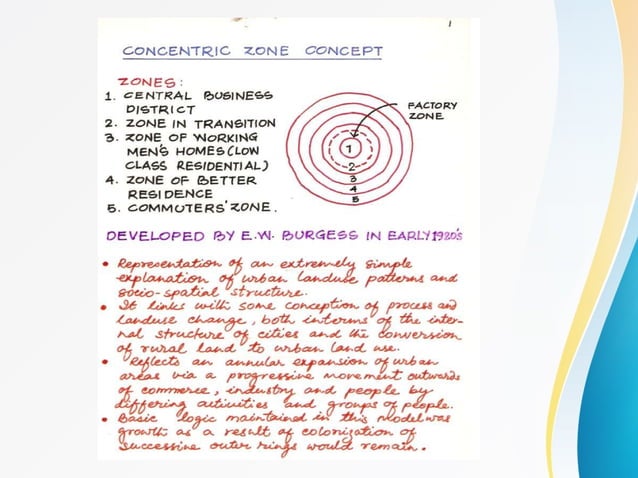 1
CONCENTRIC ZONE CONCEPT
ZONES:
1. CENTRAL BUSINESS
DISTRICT
2. ZONE IN TRANSITION
3. ZONE OF WORKING
MEN'S HOMES (LOW
CLASS RESIDENTIAL)
4. ZONE OF BETTER
RESIDENCE
5. COMMUTERS' ZONE.
FACTORY
ZONE
1
2
3
4
5
DEVELOPED BY E.W. BURGESS IN EARLY 1920's
• Representation of an extremely simple
explanation of urban landuse patterns and
socio-spatial structure.
• It links with some conception of process and
landuse change, both interms of the inter-
nal structure of cities and the conversion
of rural land to urban land use.
• Reflects an annular expansion of urban
areas via a progressive movement outwards
of commerce, industry and people by
differing activities and groups of people.
• Basic logic maintained in this model was
growth as a result of colonization of
successive outer rings would remain.